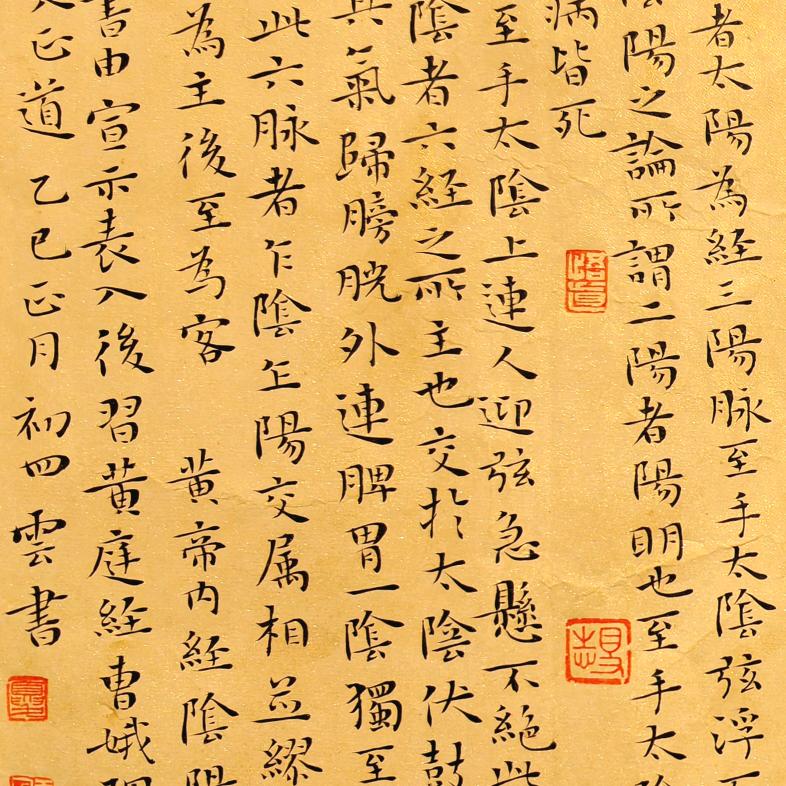 者太陽為経三陽脉至手太陰弦浮
陽之論所謂二陽者陽明也至手太
病皆死
至手太陰上連人迎弦急懸不絶此
陰者六経之所主也交於太陰伏鼓
其氣歸膀胱外連脾胃一陰獨至
此六脉者乍陰乍陽交属相並繆
為主後至為客 黄帝内経陰陽
書由宣示表入後習黄庭経曹娥
正道 乙巳正月初四雲書